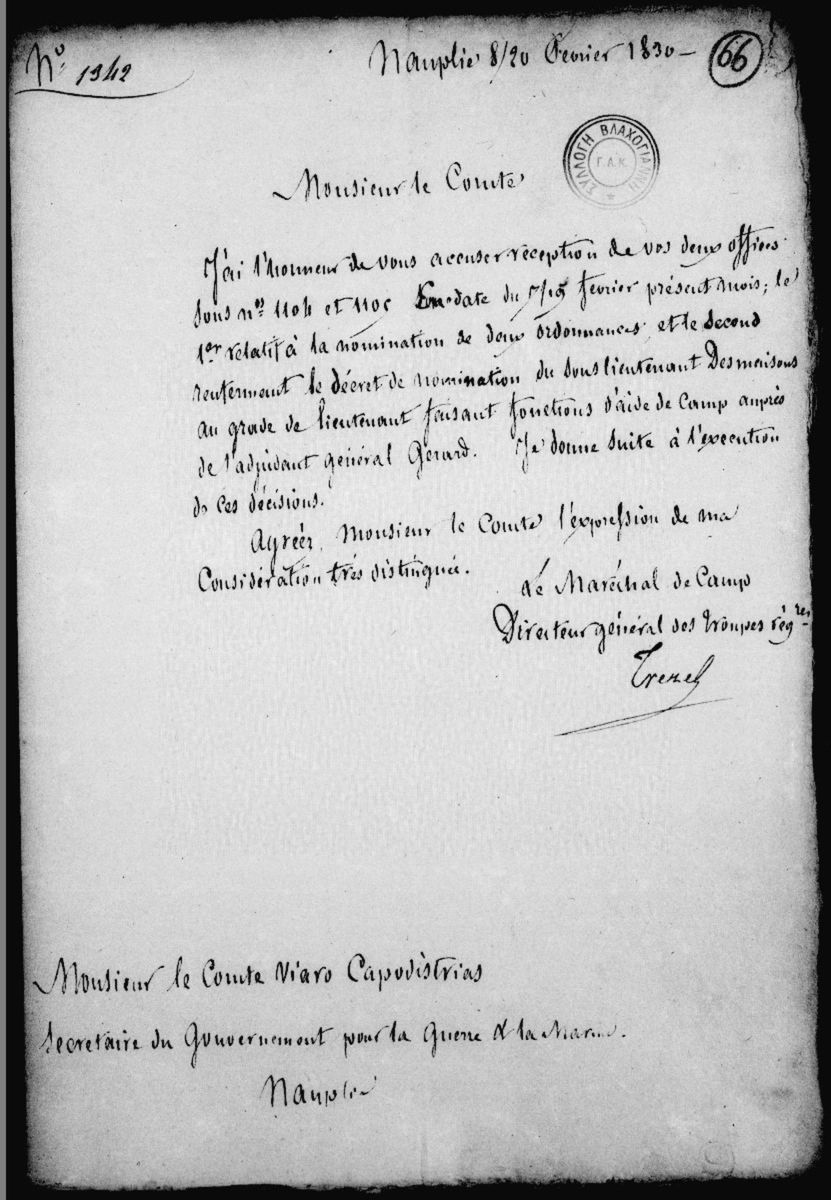 Nº 1342
Nauplie 8/20 Fevrier 1830 –
66
ΣΥΛΛΟΓΗ ΒΛΑΧΟΓΙΑΝΝΗ
Γ.Α.Κ.
Monsieur le Comte
J'ai l'honneur de vous accuser réception de vos deux offices
sous nos 1104 et 1105 En date du 7/19 fevrier présent mois; le
1er relatif à la nomination de deux ordonnances, et le second
renfermant le décret de nomination du sous lieutenant Desmaisons
au grade de lieutenant faisant fonctions d'aide de Camp auprès
de l'adjudant général Gérard. Je donne suite à l'execution
de ces décisions.
Agréez, Monsieur le Comte l'expression de ma
Considération très distinguée.
Le Maréchal de Camp
Directeur général des troupes régres
Trezel
Monsieur le Comte Viaro Capodistrias
Secretaire du Gouvernement pour la Guerre & la Marine.
Nauplie